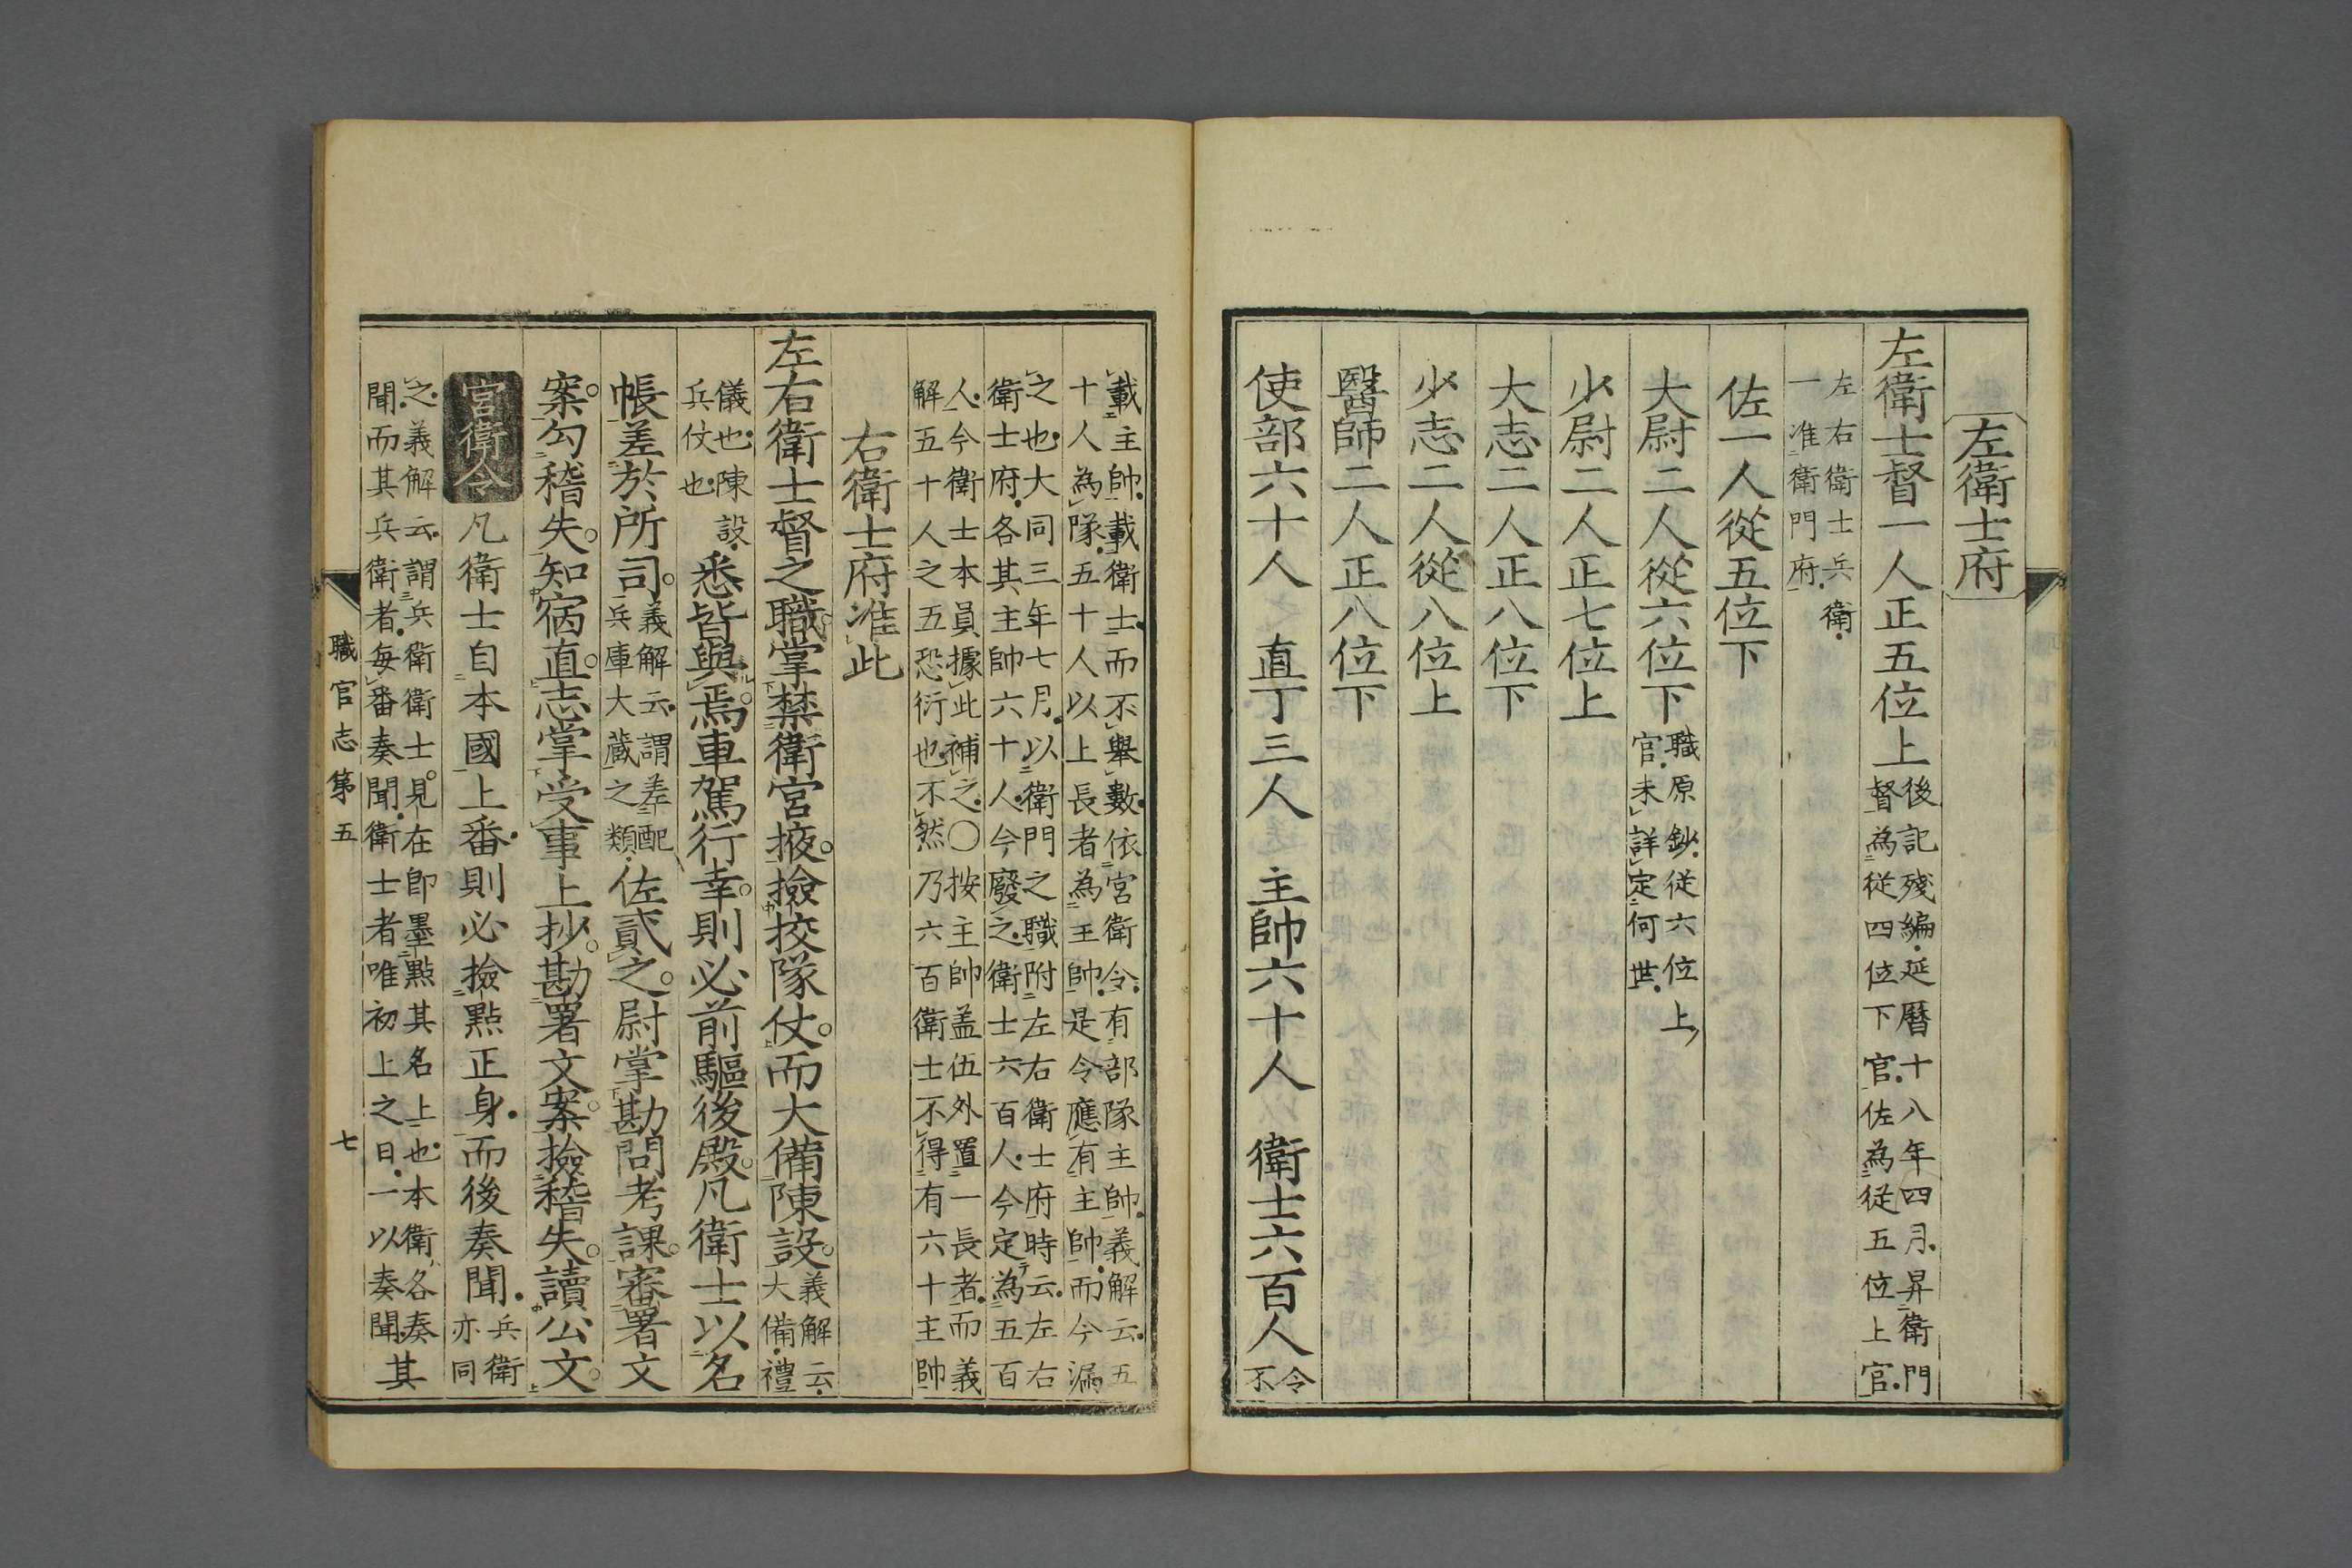 左衛士府
左衛士督一人正五位上後記殘編延暦十八年四月昇衛門
督為從四位下官佐為從五位上官
左右衛士兵衛
一准衛門府
佐一人從五位下
大尉二人從六位下職原鈔從六位上
官未詳定何世
少尉二人正七位上
大志二人正八位下
少志二人從八位上
醫師二人正八位下
使部六十人 直丁三人 主帥六十人 衛士六百人令
不
載主帥載衛士而不舉數依宮衛令有部隊主帥義解云五
十人為隊五十人以上長者為主帥是令應有主帥而今漏
之也大同三年七月以衛門之職附左右衛士府時云左右
衛士府各其主帥六十人今廢之衛士六百人今定為五百
人今衛士本員據此補之〇按主帥盖伍外置一長者而義
解五十人之五恐衍也不然乃六百衛士不得有六十主帥
右衛士府准此
左右衛士督之職掌禁衛宮掖撿挍隊仗而大備陳設義解云
大備禮
儀也陳設
兵仗也悉皆與焉車駕行幸則必前驅後殿凡衛士以名
帳差於所司義解云謂差配
兵庫大藏之類佐貳之尉掌勘問考課審署文
案勾稽失知宿直志掌受事上抄勘署文案撿稽失讀公文
宮衛令凡衛士自本國上番則必撿點正身而後奏聞兵衛
亦同
之義解云謂兵衛衛士見在即墨點其名上也本衛各奏
聞而其兵衛者每番奏聞衛士者唯初上之日一以奏聞其
職官志第五
七